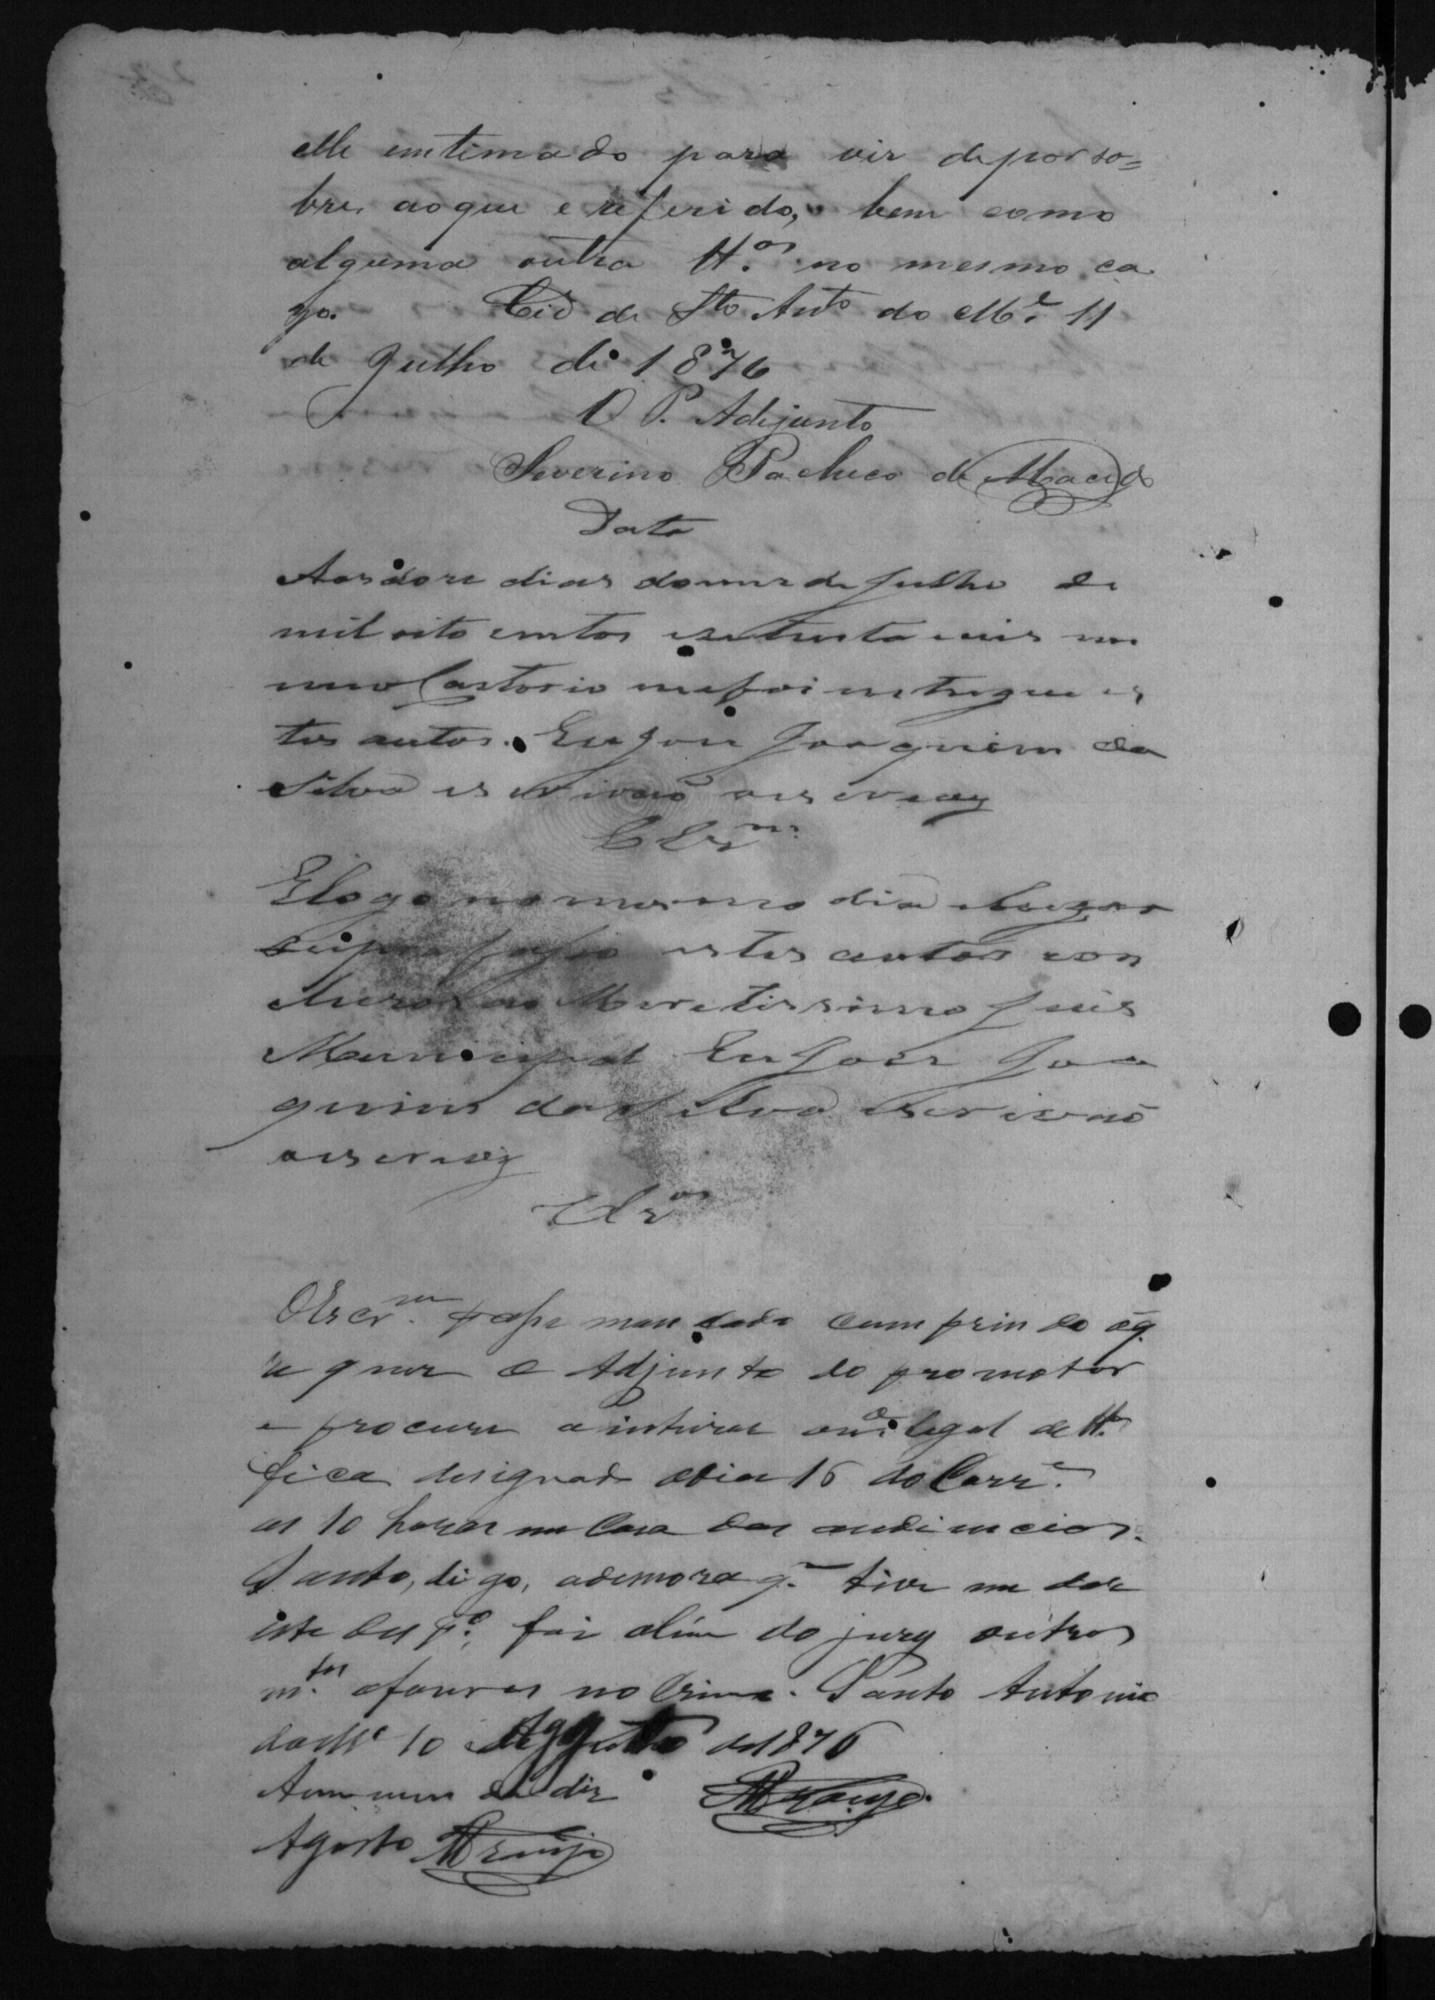 elle emtemado para vir depor so=
bre aoque e referido, bem como
alguma outra tt.as no mesmo ca
zo. Cid de Sto Anto do Mb.e 11
de Julho de 1876
O P. Adijunto
Severino Pacheco de Macedo
Data
Aos dose dias do mes de Julho de
mil oito centos e setenta e seis em
meu Cartorio me foi entregue es
tes autos. Eu José Joaquim da
Silva escrivaõ o escrevy
Clsm
E logo no mesmo dia e lugar
supra faço estes autos con
cluzos ao Meretissimo Juis
Municipal Eu José Joa
quim da Silva escrivaõ
o escrevy
Clsos
O Escr.m passe mandado cumprindo o q.
requer o Adjunto do promotor
e procure a inteirar o no legal de tt.as
fica designado o dia 16 do Corr.e
as 10 horas na Casa das audiencias.
Santo, digo, a demora q.e tive em dar
este desp.o, foi alem do jury outros
m.tos afaseres no Crime. Santo Antonio
do Me 10 de Agosto de 1876
Araujo.
dis
Agosto Araujo